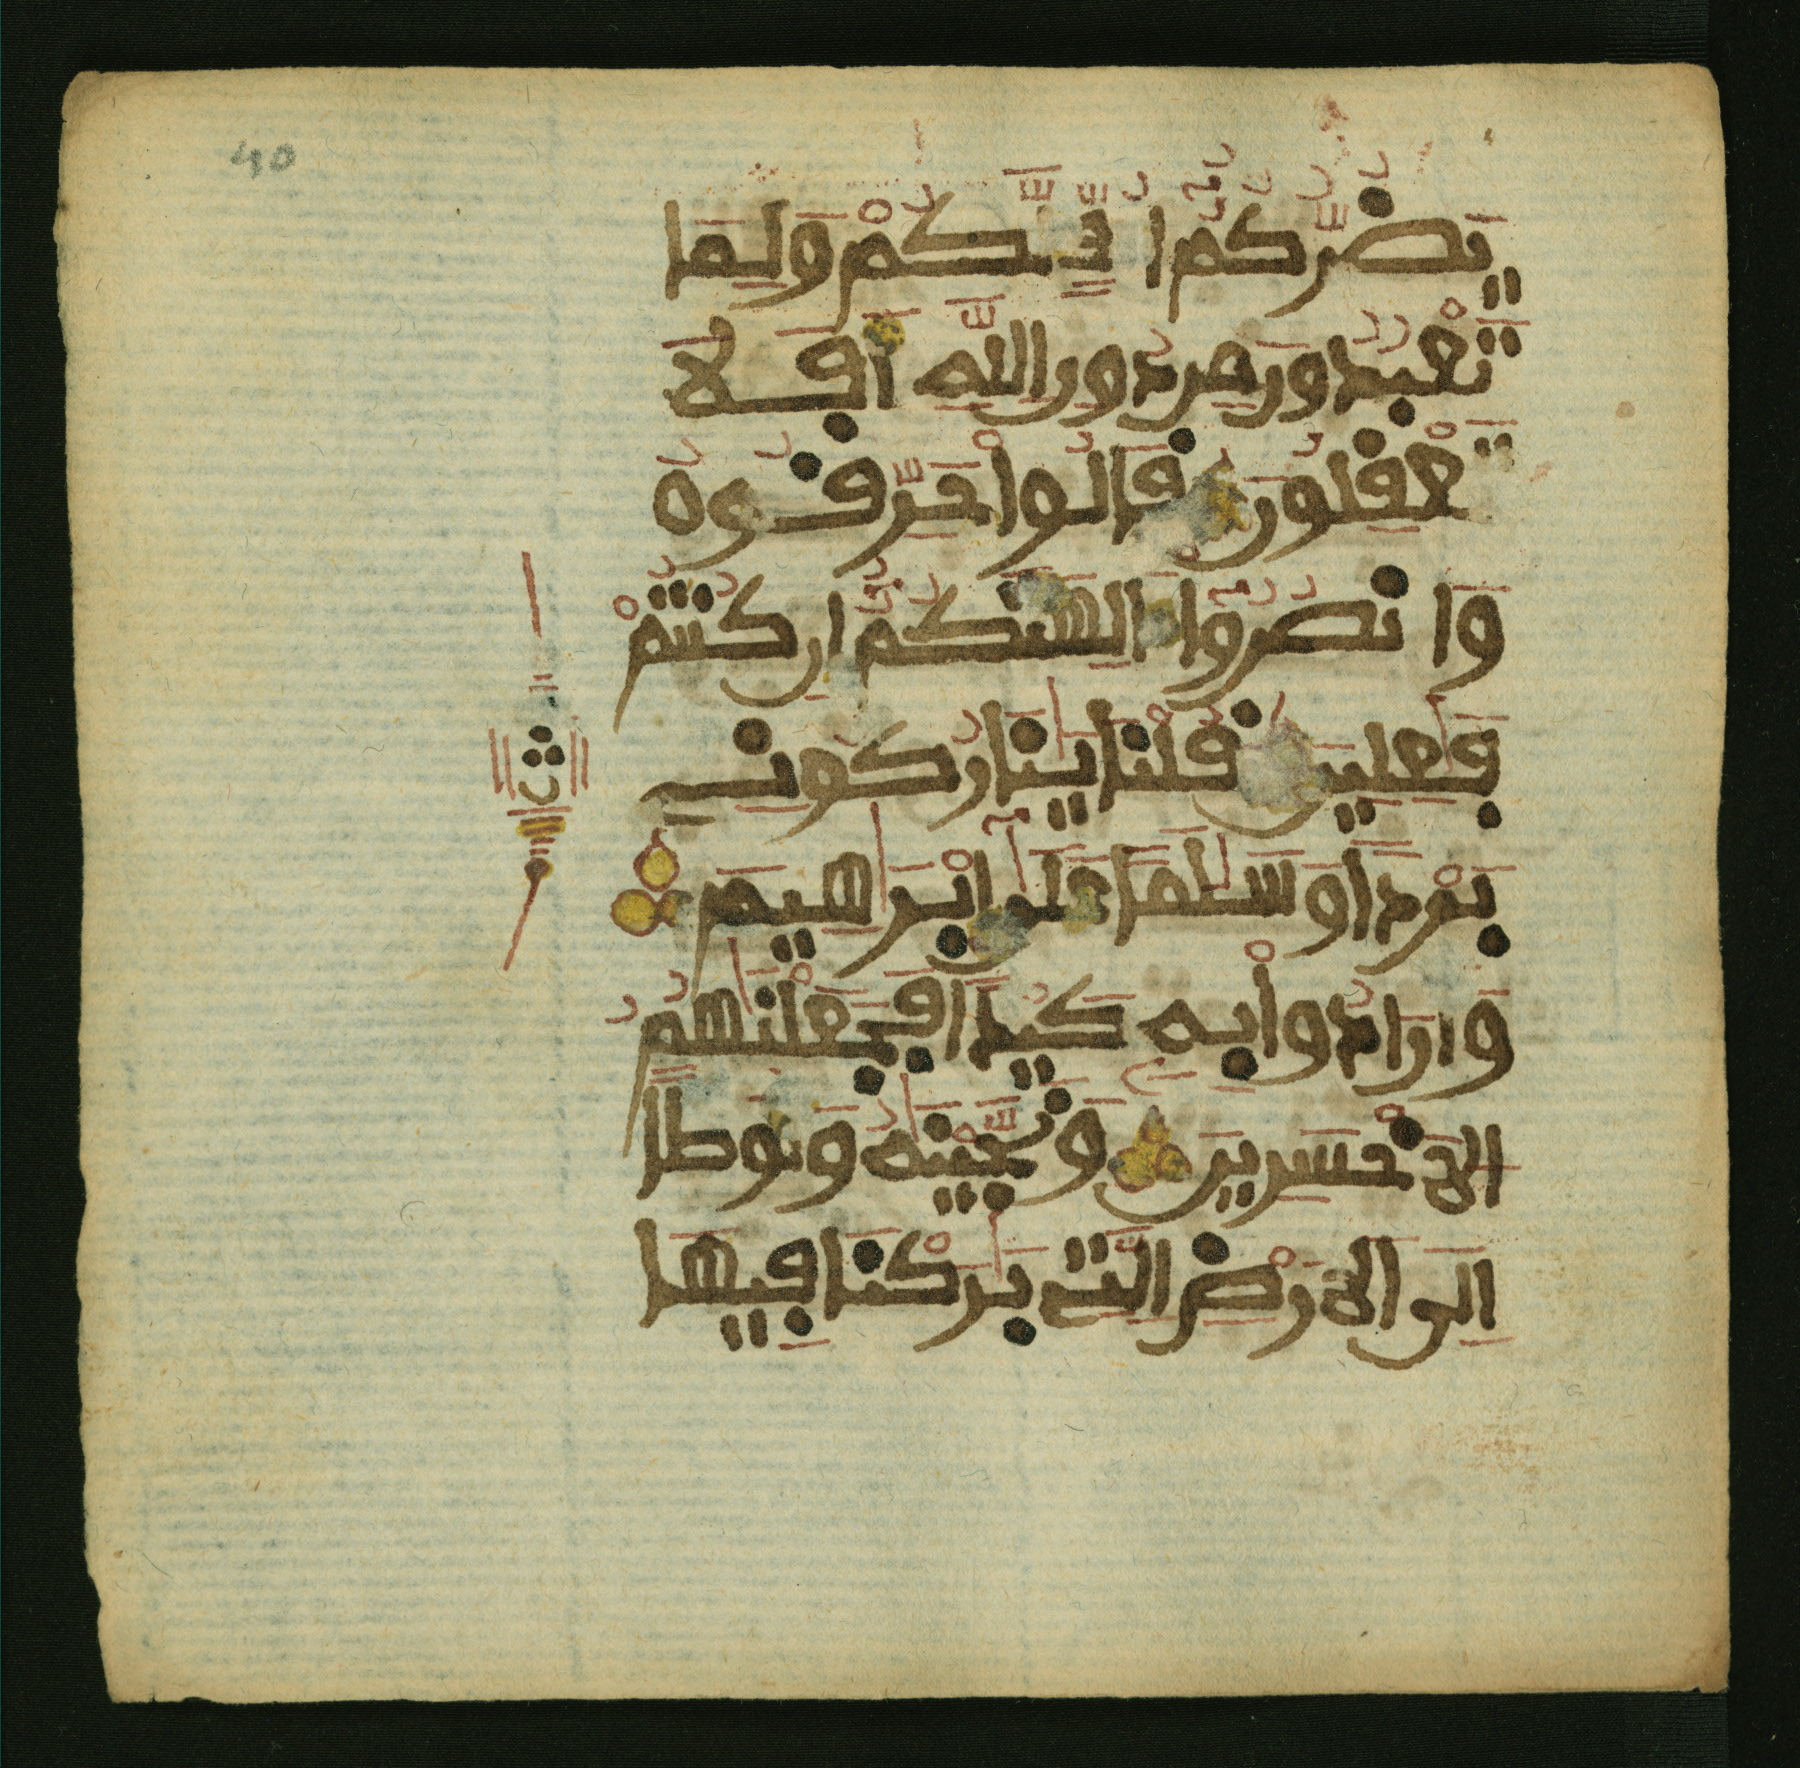 40
يَضُرُّكُمُۥٓ أُفٍّ لَّكُمْ وَلِمَا
تَعْبُدُونَ مِن دُونِ اِللَّهِ أَفَلَا
تَعْقِلُونَ قَالُواْ حَرِّقُوهُ
وَانصُرُوٓاْ ءَالِهَتَكُمُۥٓ إِن كُنتُمْ
فَٰعِلِينَ قُلْنَا يَٰنَارُ كُونِے
بَرْداً وَسَلَٰماً عَلَىٰٓ إِبْرَٰهِيمَ
وَأَرَادُواْ بِهِۦ كَيْداً فَجَعَلْنَٰهُمُ
اُلَاخْسَرِينَ وَنَجَّيْنَٰهُ وَلُوطاً
اِلَى اَلَارْضِ اِلتِے بَٰرَكْنَا فِيهَا
ث